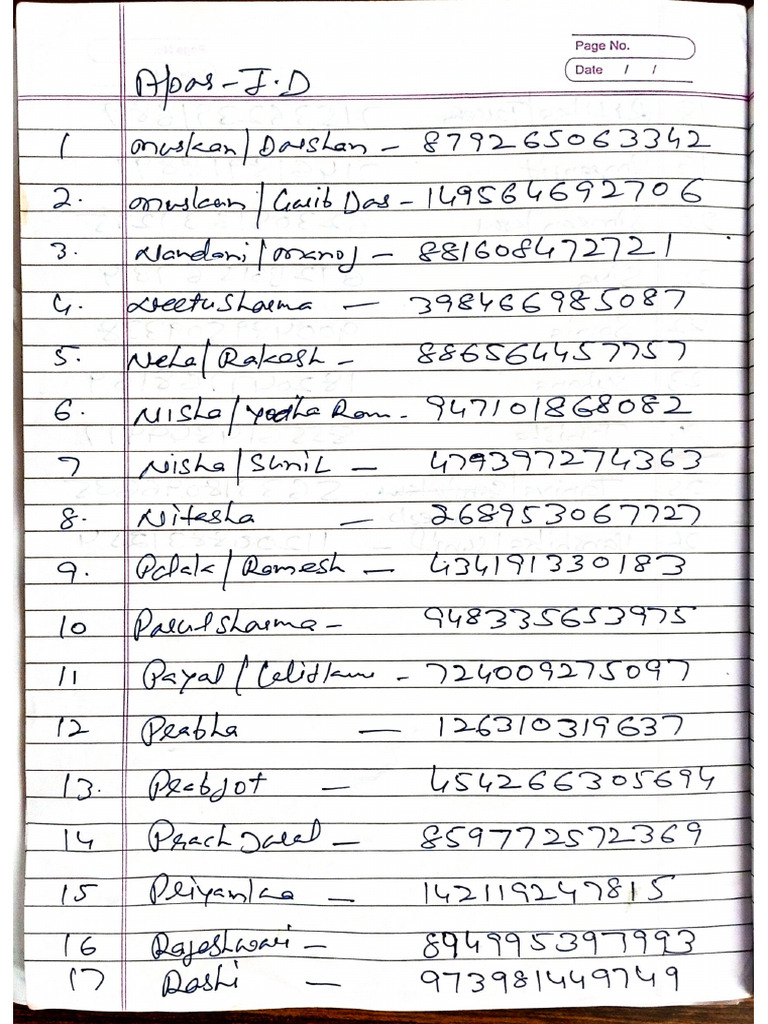 Page No.
Date / /
Apar - I.D
1 Muskan / Darshan - 879265063342
2. Muskan / Garib Das - 149564692706
3. Nandani / Manoj - 881608472721
4. Neetu Sharma - 398466985087
5. Neha / Rakesh - 886564457757
6. Nisha / Yodha Ram - 947101868082
7 Nisha / Sunil - 479397274363
8. Nitesha - 268953067727
9. Palak / Ramesh - 434191330183
10 Parul Sharma - 948335653975
11 Payal / - 724009275097
12 Prabha - 126310319637
13. Prabjot - 454266305694
14 Prachi Jaral - 859772572369
15 Priyanka - 142119247815
16 Rajeshwari - 894995397993
17 Rashi - 973981449749